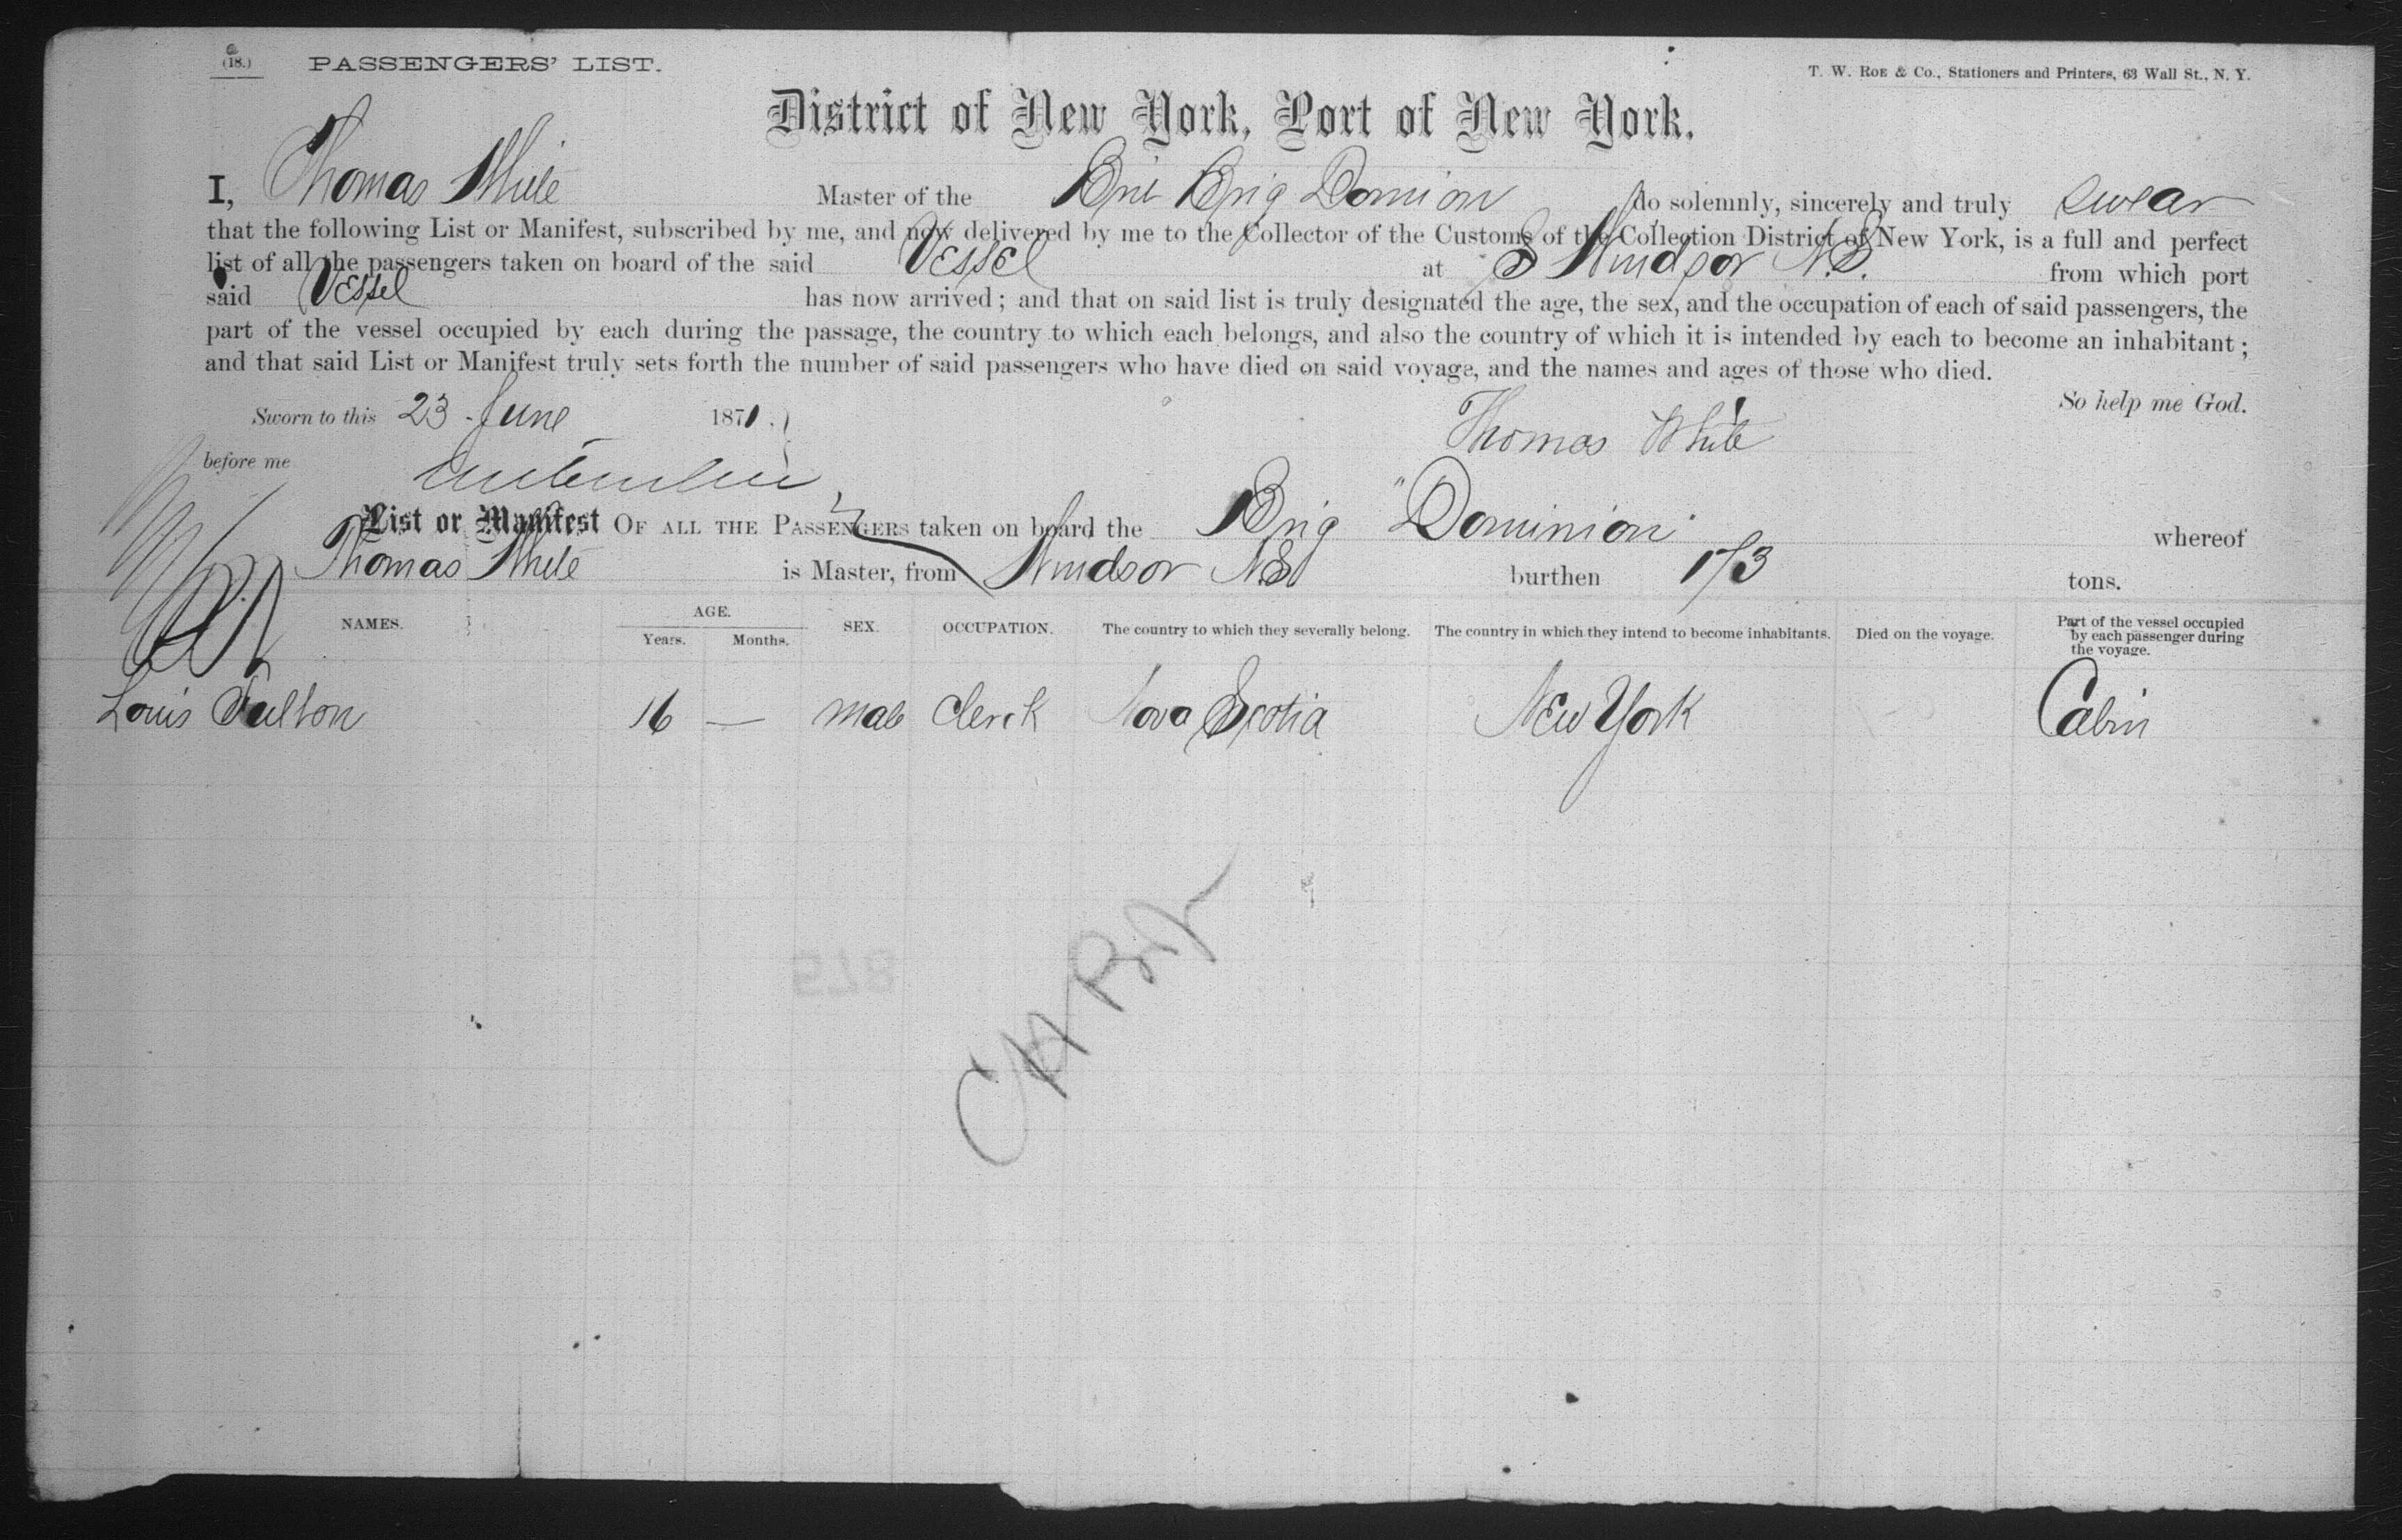 (18.) PASSENGERS' LIST.
T. W. Roe & Co., Stationers and Printers, 63 Wall St., N. Y.
District of New York, Port of New York.
I, Thomas White Master of the Bri Brig Domion do solemnly, sincerely and truly swear
that the following List or Manifest, subscribed by me, and now delivered by me to the Collector of the Customs of the Collection District of New York, is a full and perfect
list of all the passengers taken on board of the said Vessel at Windsor N.S. from which port
said Vessel has now arrived; and that on said list is truly designated the age, the sex, and the occupation of each of said passengers, the
part of the vessel occupied by each during the passage, the country to which each belongs, and also the country of which it is intended by each to become an inhabitant;
and that said List or Manifest truly sets forth the number of said passengers who have died on said voyage, and the names and ages of those who died.
So help me God.
Sworn to this 23 June 1871.
Thomas White
before me
List or Manifest OF ALL THE PASSENGERS taken on board the Brig "Dominion" whereof
Thomas White is Master, from Windsor NS burthen 173 tons.
NAMES. AGE. SEX. OCCUPATION. The country to which they severally belong. The country in which they intend to become inhabitants. Died on the voyage. Part of the vessel occupied by each passenger during the voyage.
Years. Months.
Louis Fulton 16 — male clerk Nova Scotia New York Cabin